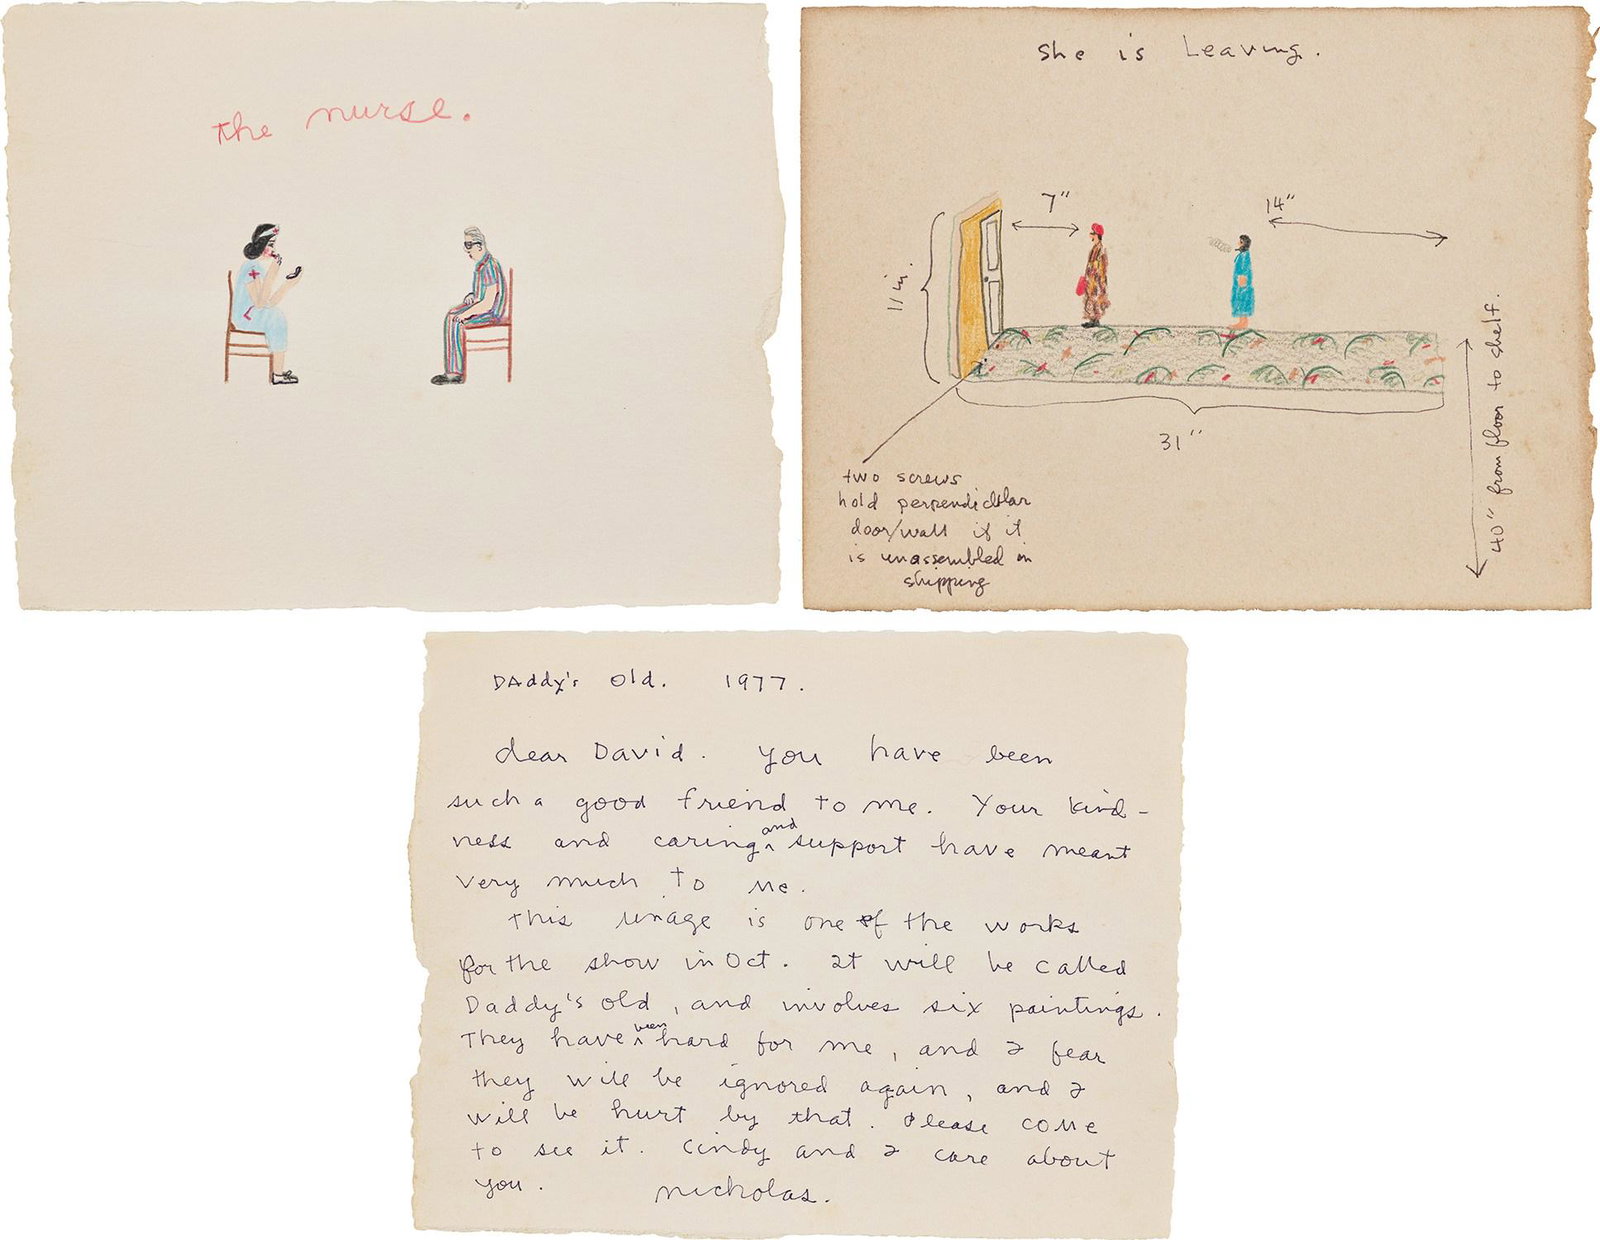 the nurse.
She is Leaving.
7"
14"
11 in.
31"
40" from floor to shelf.
two screws
hold perpendicular
door/wall if it
is unassembled in
shipping
DAddy's Old. 1977.
dear David. You have been
such a good friend to me. Your kind-
ness and caring and support have meant
very much to me.
This image is one of the works
for the show in Oct. It will be called
Daddy's old, and involves six paintings.
They have been hard for me, and I fear
they will be ignored again, and I
will be hurt by that. Please come
to see it. Cindy and I care about
you. nicholas.